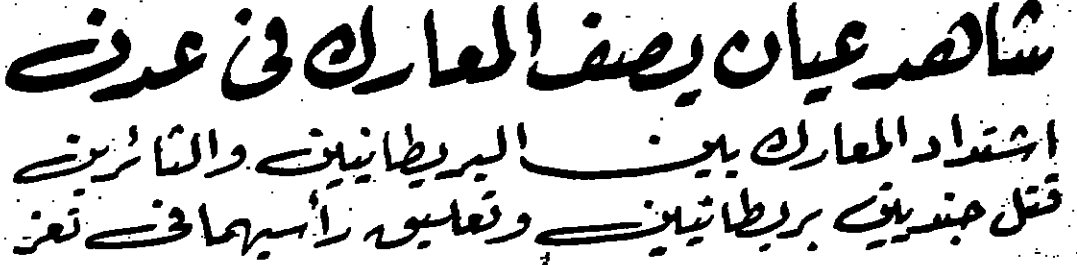 شاهد عيان يصف المعارك في عدن
اشتداد المعارك بين البريطانيين والثائرين
قتل جنديين بريطانيين وتعليق رأسيهما في تعز